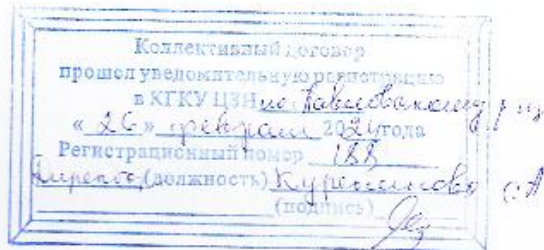 Коллективный договор
прошел уведомительную регистрацию
в КГКУ ЦЗН по Павловскому р-ну
« 26 » февраля 2024 года
Регистрационный номер 188
Директор (должность)
(подпись)